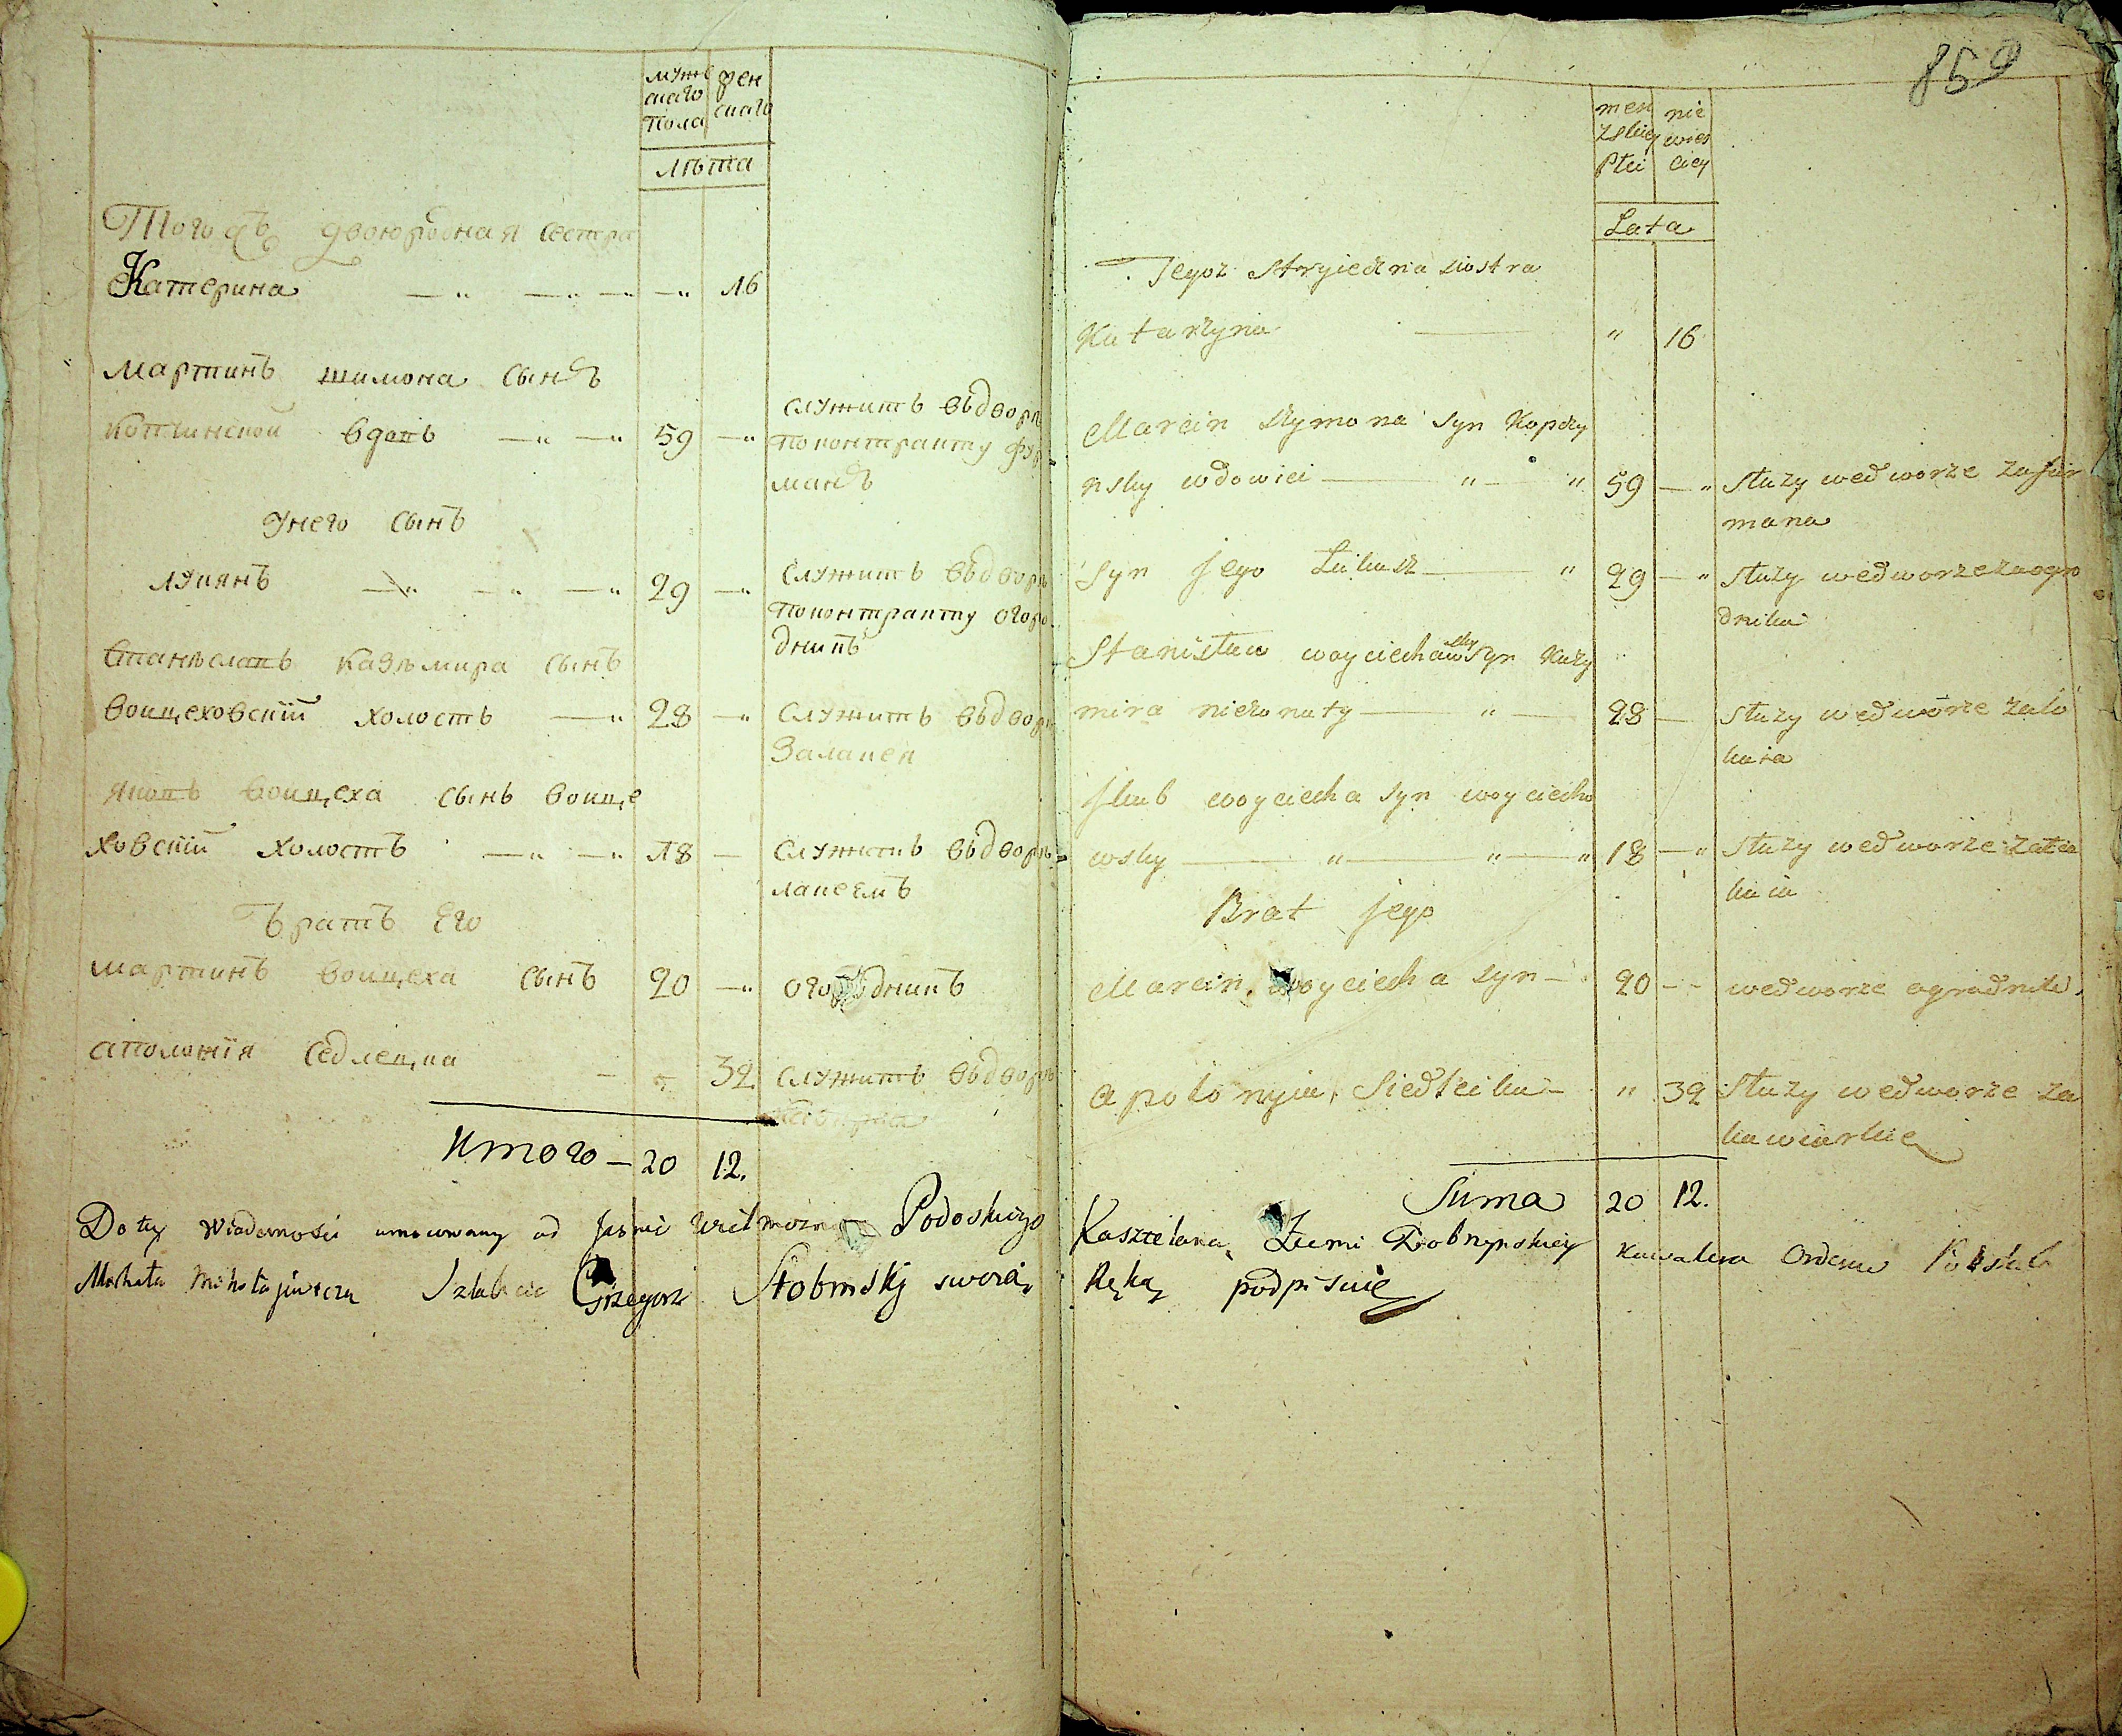 мужескаго пола
женскаго
лѣта
Тогожъ двоюродная сестра
Катерина —„ —„ —„ —„ 16
мартинъ шимона сынъ
вдовъ —„ —„ 59 —„
служитъ въдворѣ
поконтракту фур
манъ
Унего сынъ
лукянъ —„ —„ —„ 29 —„
служитъ въдворѣ
поконтракту огоро
дникъ
Станѣславъ казѣмира сынъ
воицеховскій холостъ —„ 28 —„
служитъ въдворѣ
Залакея
яковъ воицеха сынъ воице
ховскій холостъ —„ —„ 18 —
служитъ въдворѣ
лакеемъ
братъ его
мартинъ воицеха сынъ 20 —„ огородникъ
аполонія седлецка - „ 32 служитъ въдворѣ
Итого — 20 12.
859
men
zskiey
Płci
nie
wies
ciey
Lata
Tegoż Stryieczna siostra
Katarzyna — „ 16
Marcin szymona syn Kopczy
nsky wdowiec — „ — „ 59 — „ służy wedworze zafur
mana
syn jego Łukasz — „ 29 — „ służy wedworze zaogro
dnika
Stanisław woyciechowsky syn Kazi
mira nieżonaty — „ — 28 — służy wedworze zalo
kaia
jkub woyciecha syn woyciecho
wsky — „ — „ — „ 18 — „ służy wedworze zala
kaia
Brat jego
Marcin woyciecha syn — 20 - - wedworze ogrodnik
apolonyia Siedlecka — „ 32 służy wedworze za
kawiarkie
Suma 20 12.
Do tey wiadomości umocowany od Jasnie wielmożnego Podoskiego Kasztelana Ziemi Dobrzynskiey Kawalera Orderu
Michała Mikołajewicza Szlachcic Grzegorz swoią Ręką podpisuię